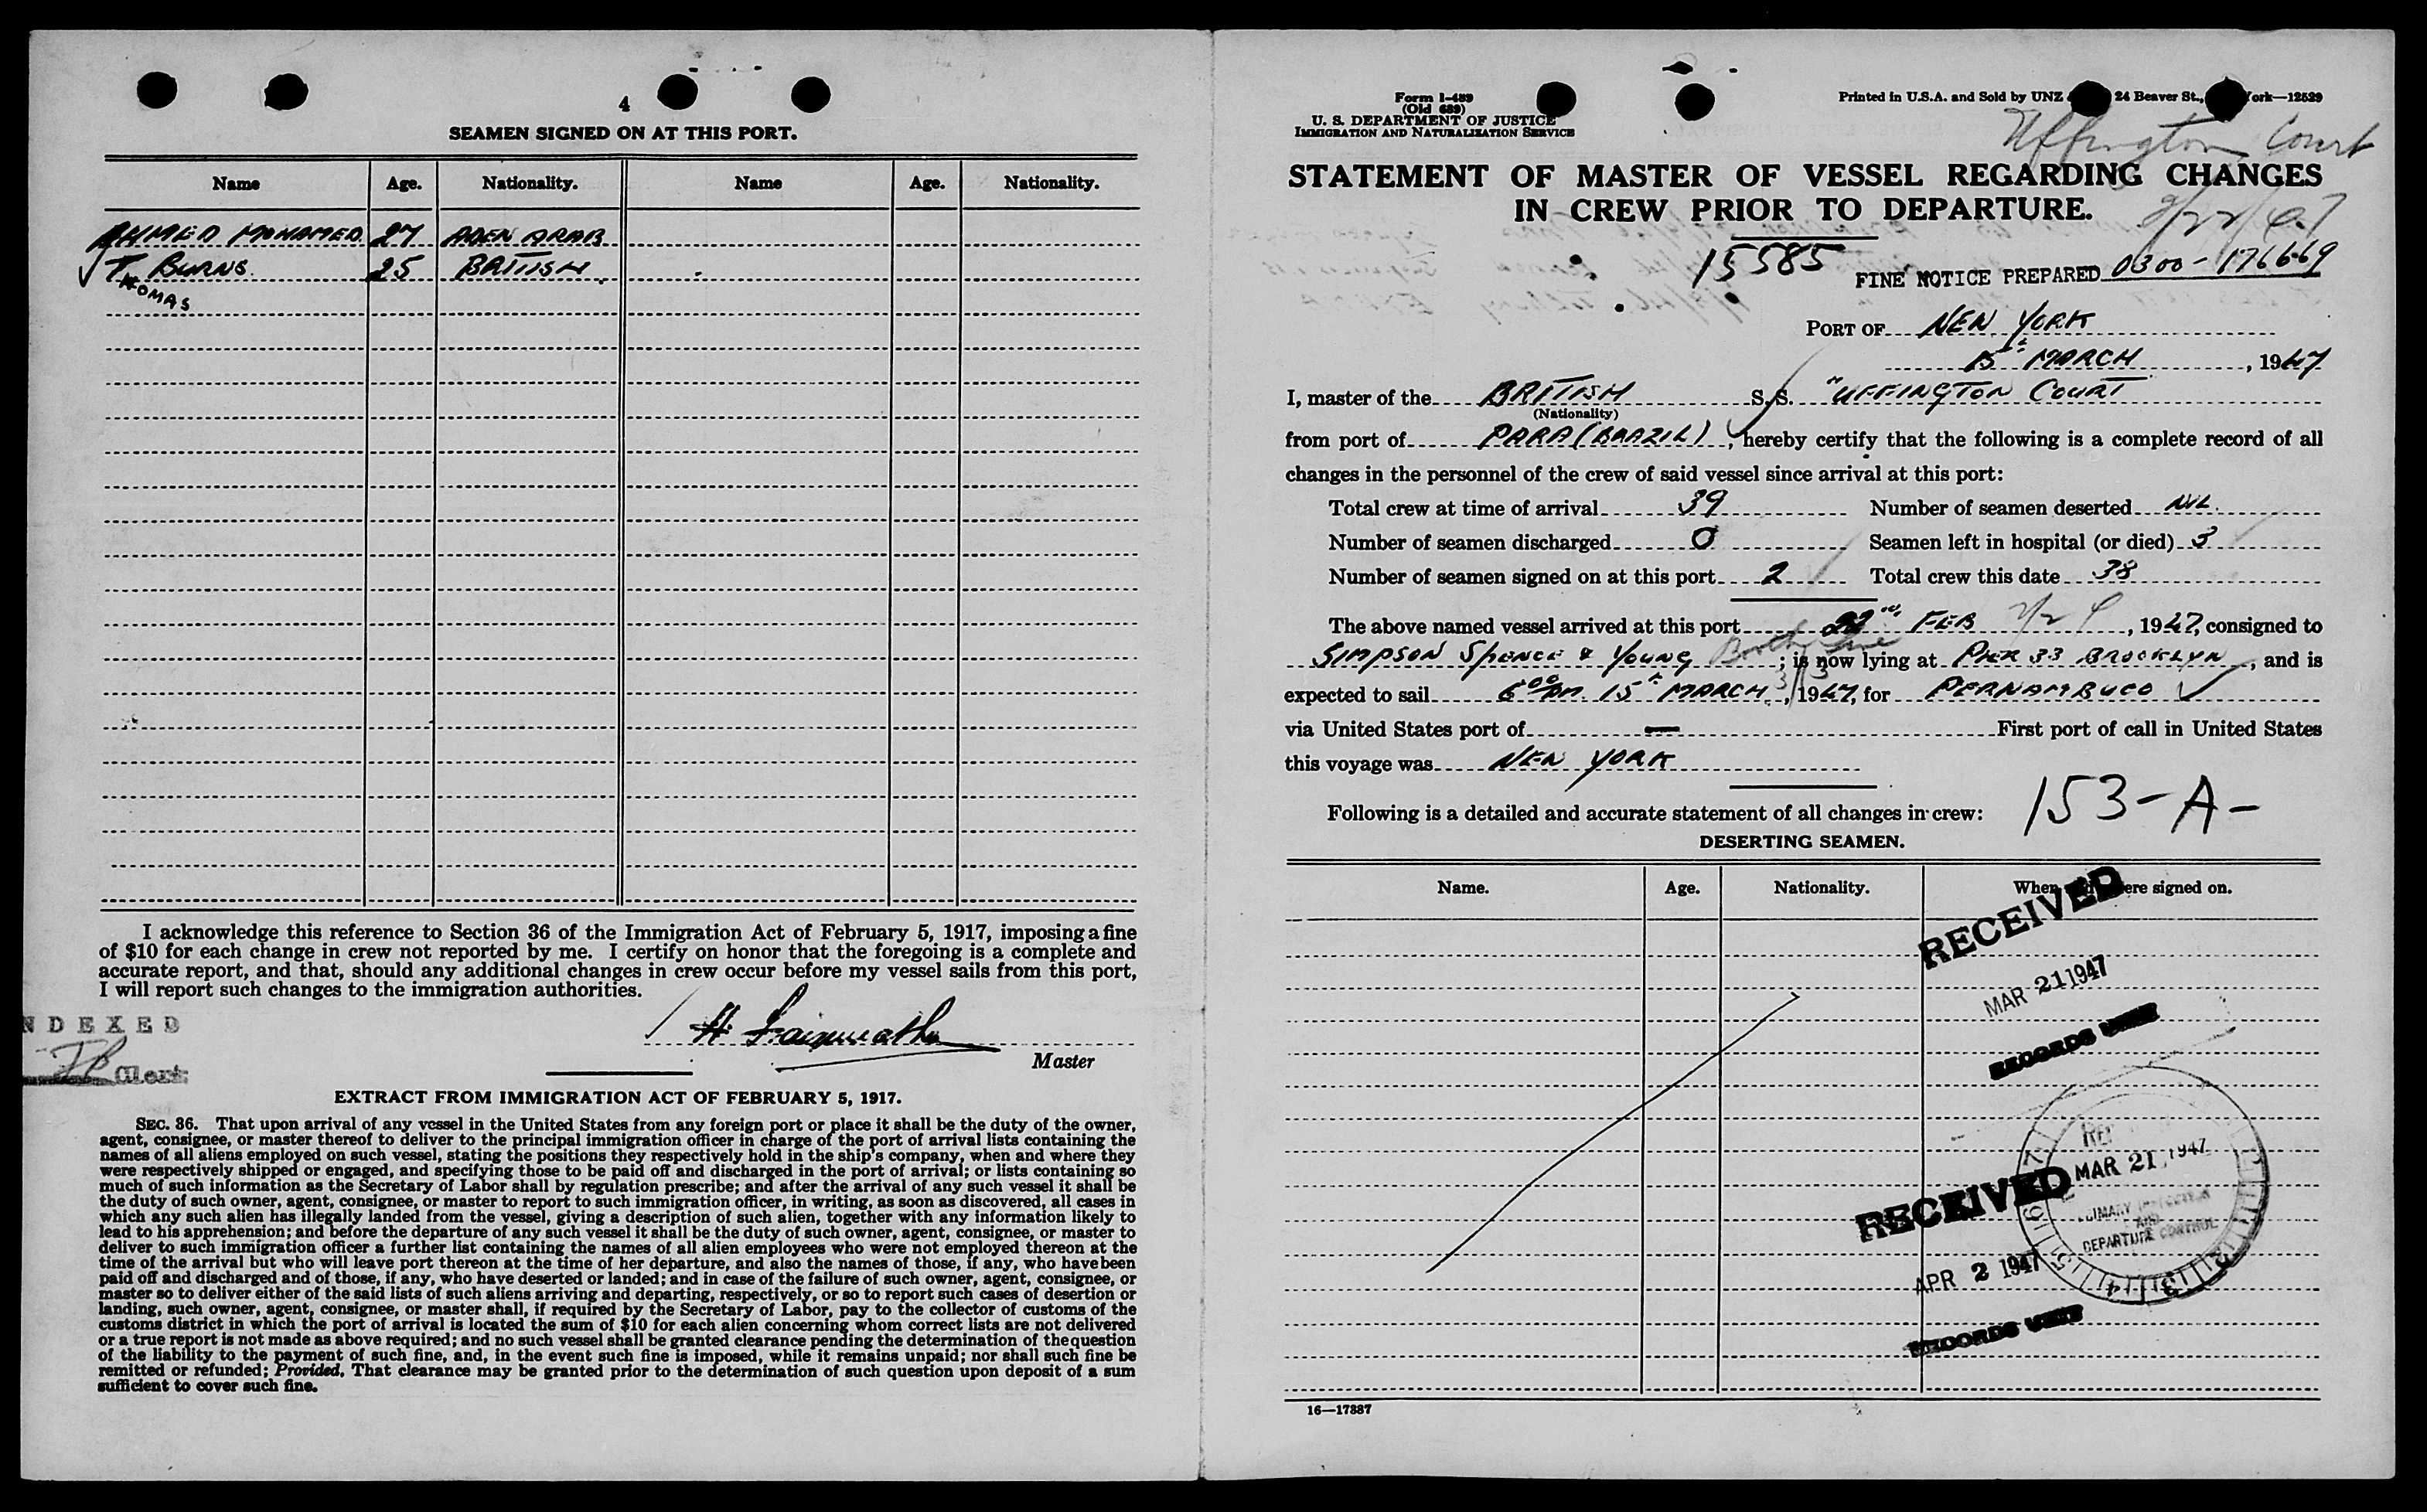 4
SEAMEN SIGNED ON AT THIS PORT.
Name Age. Nationality. Name Age. Nationality.
AHMED MOHAMED 27 ADEN ARAB
T. BURNS 25 BRITISH
THOMAS
I acknowledge this reference to Section 36 of the Immigration Act of February 5, 1917, imposing a fine
of $10 for each change in crew not reported by me. I certify on honor that the foregoing is a complete and
accurate report, and that, should any additional changes in crew occur before my vessel sails from this port,
I will report such changes to the immigration authorities.
NDEXED
Clerk
H
Master
EXTRACT FROM IMMIGRATION ACT OF FEBRUARY 5, 1917.
SEC. 36. That upon arrival of any vessel in the United States from any foreign port or place it shall be the duty of the owner,
agent, consignee, or master thereof to deliver to the principal immigration officer in charge of the port of arrival lists containing the
names of all aliens employed on such vessel, stating the positions they respectively hold in the ship's company, when and where they
were respectively shipped or engaged, and specifying those to be paid off and discharged in the port of arrival; or lists containing so
much of such information as the Secretary of Labor shall by regulation prescribe; and after the arrival of any such vessel it shall be
the duty of such owner, agent, consignee, or master to report to such immigration officer, in writing, as soon as discovered, all cases in
which any such alien has illegally landed from the vessel, giving a description of such alien, together with any information likely to
lead to his apprehension; and before the departure of any such vessel it shall be the duty of such owner, agent, consignee, or master to
deliver to such immigration officer a further list containing the names of all alien employees who were not employed thereon at the
time of the arrival but who will leave port thereon at the time of her departure, and also the names of those, if any, who have been
paid off and discharged and of those, if any, who have deserted or landed; and in case of the failure of such owner, agent, consignee, or
master so to deliver either of the said lists of such aliens arriving and departing, respectively, or so to report such cases of desertion or
landing, such owner, agent, consignee, or master shall, if required by the Secretary of Labor, pay to the collector of customs of the
customs district in which the port of arrival is located the sum of $10 for each alien concerning whom correct lists are not delivered
or a true report is not made as above required; and no such vessel shall be granted clearance pending the determination of the question
of the liability to the payment of such fine, and, in the event such fine is imposed, while it remains unpaid; nor shall such fine be
remitted or refunded; Provided, That clearance may be granted prior to the determination of such question upon deposit of a sum
sufficient to cover such fine.
Form I-489
(Old 689)
U. S. DEPARTMENT OF JUSTICE
IMMIGRATION AND NATURALIZATION SERVICE
Printed in U.S.A. and Sold by UNZ 24 Beaver St., ork—12529
Uffington Court
STATEMENT OF MASTER OF VESSEL REGARDING CHANGES
IN CREW PRIOR TO DEPARTURE.
2/22/47
15585 FINE NOTICE PREPARED 0300-176669
PORT OF NEW YORK
15th MARCH, 1947
I, master of the BRITISH S.S. "UFFINGTON COURT
(Nationality)
from port of PARA (BRAZIL), hereby certify that the following is a complete record of all
changes in the personnel of the crew of said vessel since arrival at this port:
Total crew at time of arrival 39 Number of seamen deserted NIL.
Number of seamen discharged 0 Seamen left in hospital (or died) 3
Number of seamen signed on at this port 2 Total crew this date 38
The above named vessel arrived at this port 22nd FEB, 1947, consigned to
SIMPSON SPENCE & YOUNG Booth Line; is now lying at PIER 33 BROOKLYN, and is
expected to sail 6 00 PM 15th MARCH, 1947, for PERNAMBUCO
3/13
via United States port of — First port of call in United States
this voyage was NEW YORK
Following is a detailed and accurate statement of all changes in crew: 153-A-
DESERTING SEAMEN.
Name. Age. Nationality. When ere signed on.
RECEIVED
MAR 21 1947
RECORDS UNIT
MAR 21 1947
PRIMARY INSPECTION
AND
DEPARTURE CONTROL
RECEIVED
APR 2 1947
RECORDS UNIT
16—17887